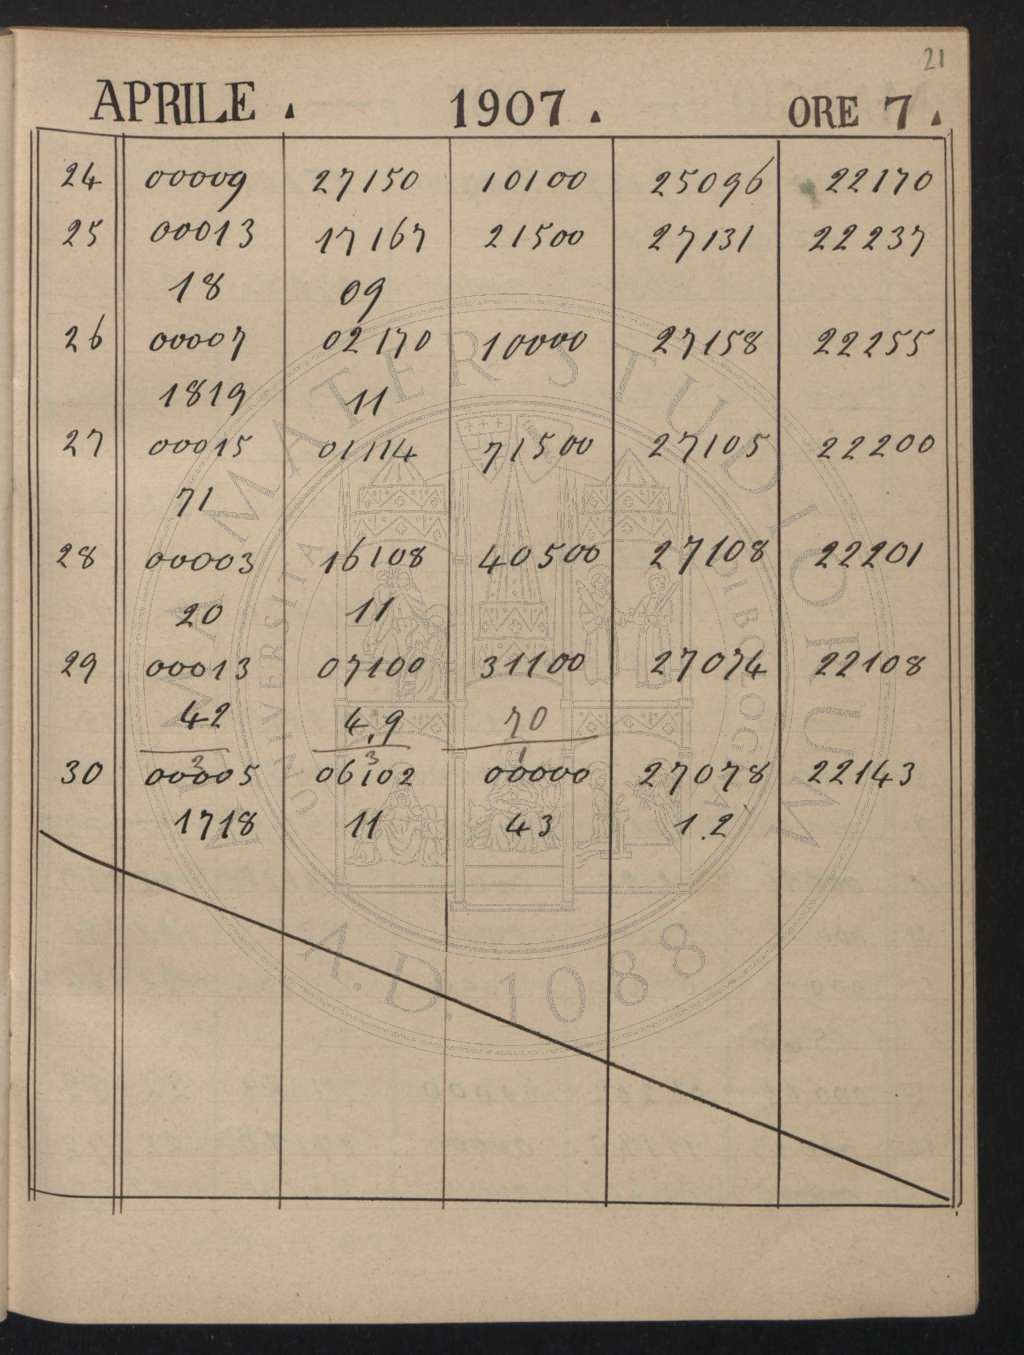 21
APRILE . 1907 . ORE 7 .
24 00009 27150 10100 25096 22170
25 00013 17167 21500 27131 22237
18 09
26 00007 02170 10000 27158 22255
1819 11
27 00015 01114 71500 27105 22200
71
28 00003 16108 40500 27108 22201
20 11
29 00013 07100 31100 27074 22108
42 4.9 70
2 3 1
30 00005 06102 00000 27078 22143
1718 11 43 1.2
ALMA MATER STUDIORUM
UNIVERSITÀ DI BOLOGNA
A.D. 1088